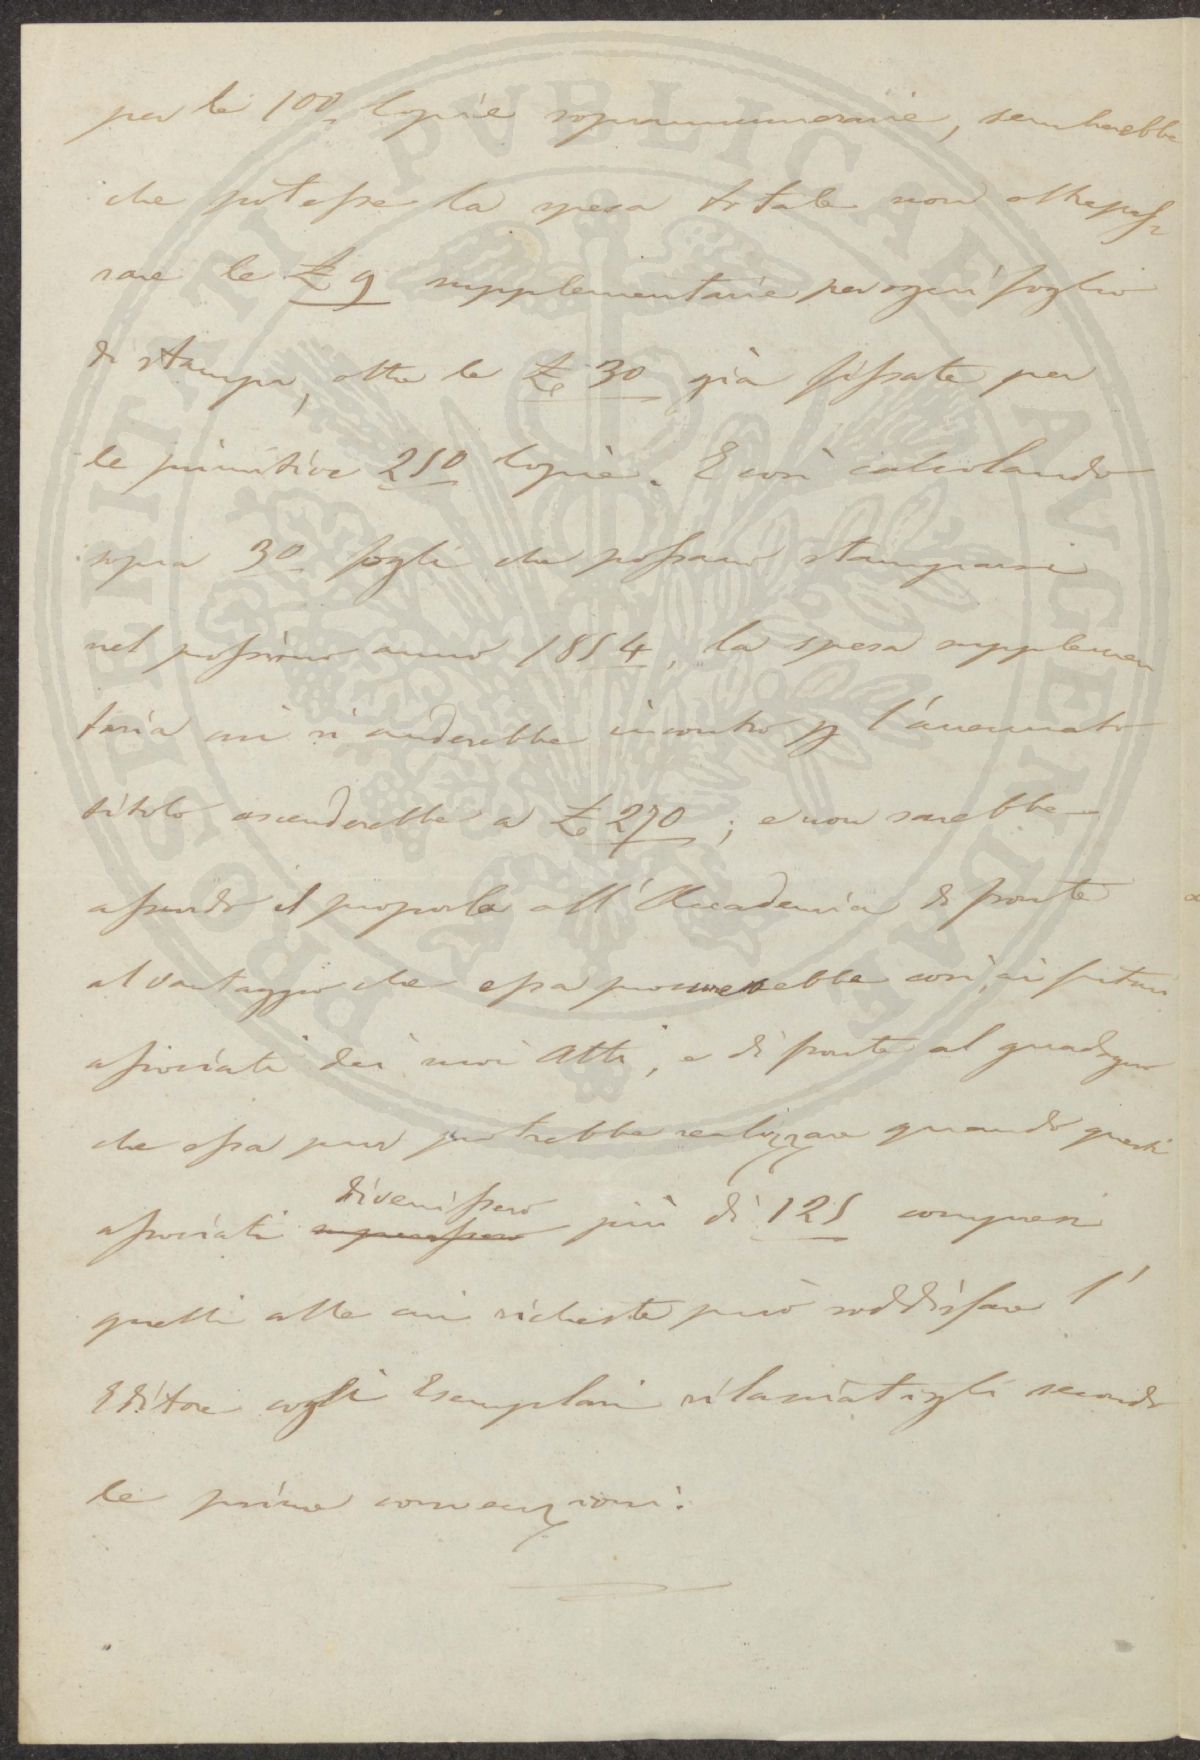 per le 100 Copie soprannumerarie, sembrebbe
che potesse la spesa totale non oltrepas=
sare le £ 9 supplementarie per ogni foglio
di stampa, oltre le £e 30 già fissate per
le primitive 250 Copie. E così calcolando
sopra 30 fogli che possano stamparsi
nel prossimo anno 1854, la spesa supplemen
taria cui si anderebbe incontro p l'accennato
titolo ascenderebbe a £e 270; e non sarebbe
assurdo il proporla all'Accademia di fronte
al vantaggio che essa procurerebbe così, ai futuri
associati dei suoi Atti, e di fronte al guadagno
che essa pur potrebbe realizzare quando questi
associati divenissero più di 125 compresi
quelli alle cui richieste può soddisfare l'
Editore cogli Esemplari rilasciatigli secondo
le prime convenzioni.
PROSPERITATI PVBLICAE AVGENDAE